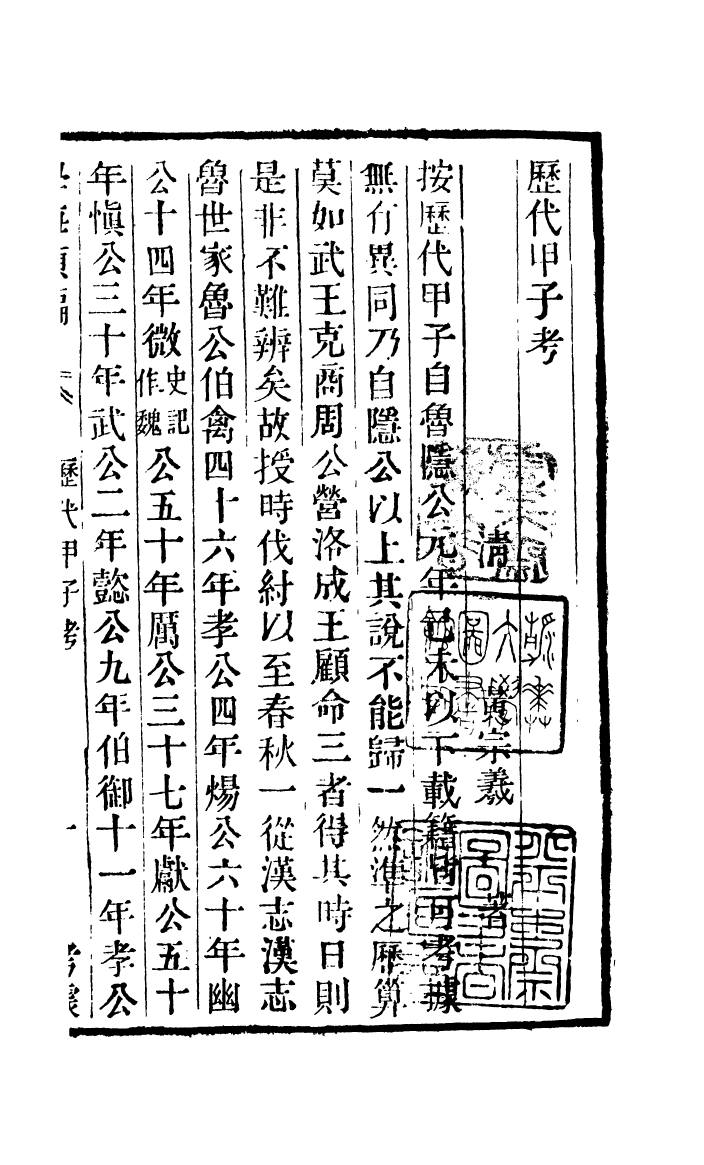 歷代甲子考
清 黃宗羲 著
按歷代甲子自魯隱公元年己未以下載籍皆可考據
無有異同乃自隱公以上其說不能歸一然準之歷算
莫如武王克商周公營洛成王顧命三者得其時日則
是非不難辨矣故授時伐紂以至春秋一從漢志漢志
魯世家魯公伯禽四十六年孝公四年煬公六十年幽
公十四年微史記作魏公五十年厲公三十七年獻公五十
年愼公三十年武公二年懿公九年伯御十一年孝公
學海類編 歷代甲子考 一 考據